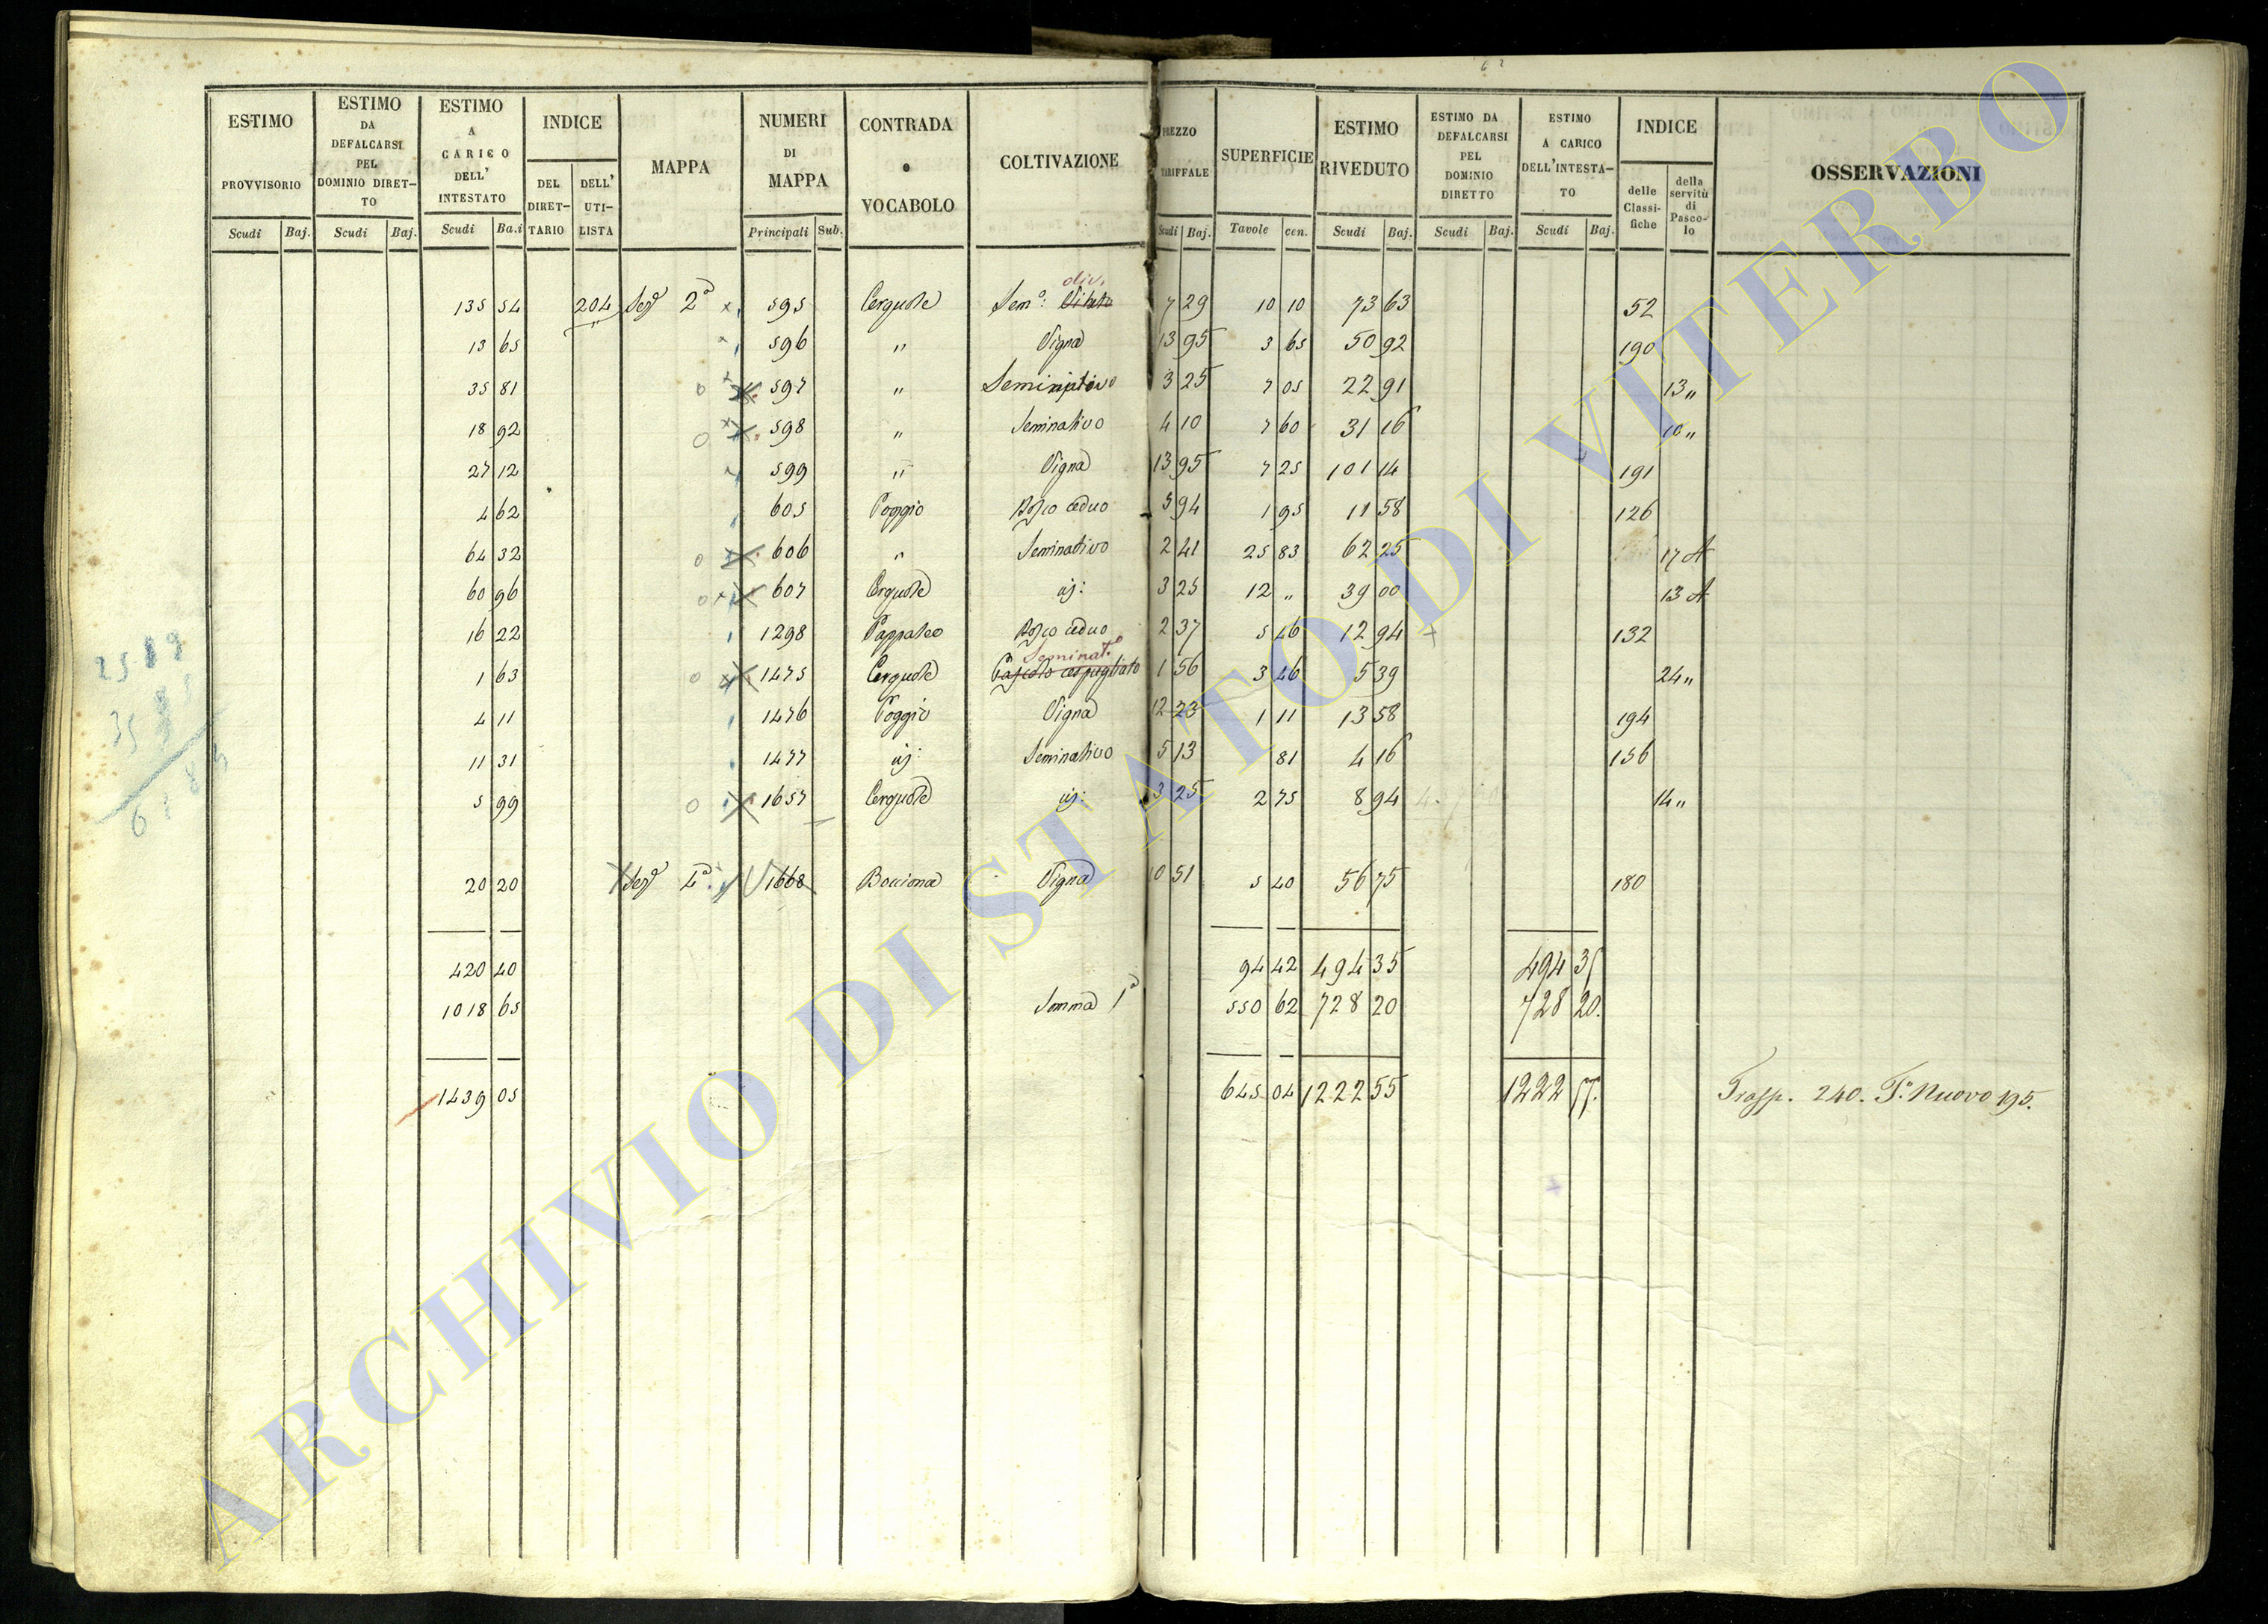 ESTIMO PROVVISORIO Scudi Baj.
ESTIMO DA DEFALCARSI PEL DOMINIO DIRET-TO Scudi Baj.
ESTIMO A CARICO DELL' INTESTATO Scudi Ba.i
INDICE DEL DIRET-TARIO DELL' UTI-LISTA
MAPPA
NUMERI DI MAPPA Principali Sub.
CONTRADA o VOCABOLO
COLTIVAZIONE
PREZZO TARIFFALE Scudi Baj.
SUPERFICIE Tavole cen.
ESTIMO RIVEDUTO Scudi Baj.
ESTIMO DA DEFALCARSI PEL DOMINIO DIRETTO Scudi Baj.
ESTIMO A CARICO DELL'INTESTA-TO Scudi Baj.
INDICE delle Classi-fiche della servitù di Pasco-lo
OSSERVAZIONI
div.
135 54 204 Sez.e 2a 595 Cerquete Sem.o: Vitato 7 29 10 10 73 63 52
13 65 596 " Vigna 13 95 3 65 50 92 190
35 81 597 " Seminativo 3 25 7 05 22 91 13 "
18 92 598 " Seminativo 4 10 7 60 31 16 10 "
27 12 599 " Vigna 13 95 7 25 101 14 191
4 62 605 Poggio Bosco ceduo 5 94 1 95 11 58 126
64 32 606 " Seminativo 2 41 25 83 62 25 17 A
60 96 607 Cerquete 3 25 12 " 39 00 13 A
16 22 1298 Pappaleo Bosco ceduo 2 37 5 46 12 94 132
Seminat.o
1 63 1475 Cerquete Pascolo cespugliato 1 56 3 46 5 39 24 "
4 11 1476 Poggio Vigna 12 23 1 11 13 58 194
11 31 1477 Seminativo 5 13 81 4 16 156
5 99 1657 Cerquete 3 25 2 75 8 94 14 "
20 20 Sez.e 1668 Bocciona Vigna 10 51 5 40 56 75 180
420 40 94 42 494 35 494 35
1018 65 Somma 1a 550 62 728 20 728 20.
1439 05 645 04 1222 55 1222 55. Trasp. 240. T.o Nuovo 195.
ARCHIVIO DI STATO DI VITERBO